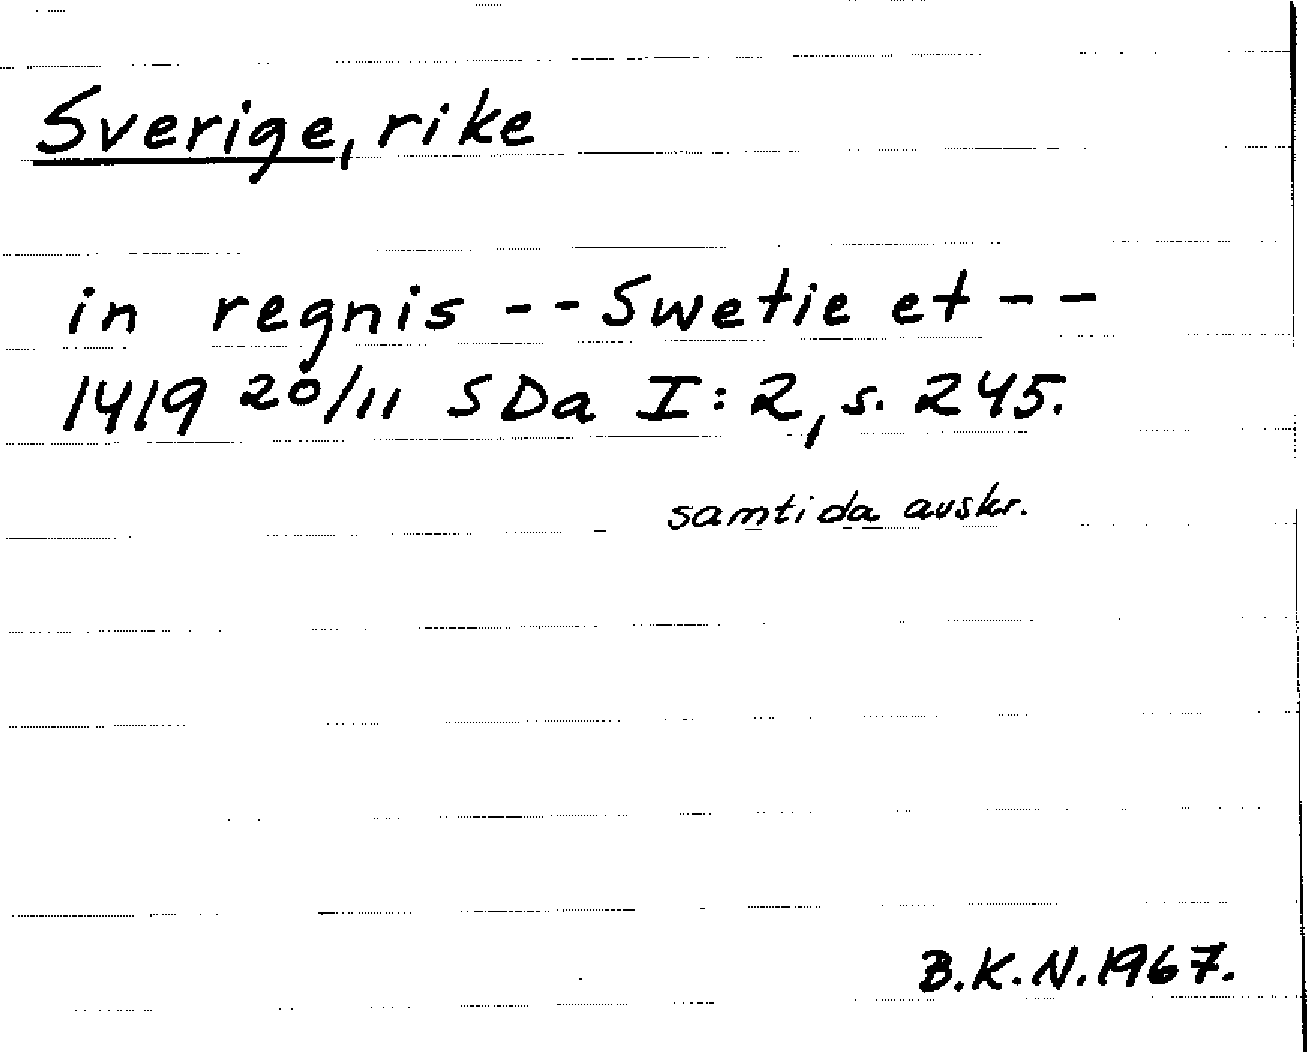 Sverige, rike
in regnis -- Swetie et --
1419 20/11 SDa I:2, s. 245.
samtida avskr.
B.K.N. 1967.